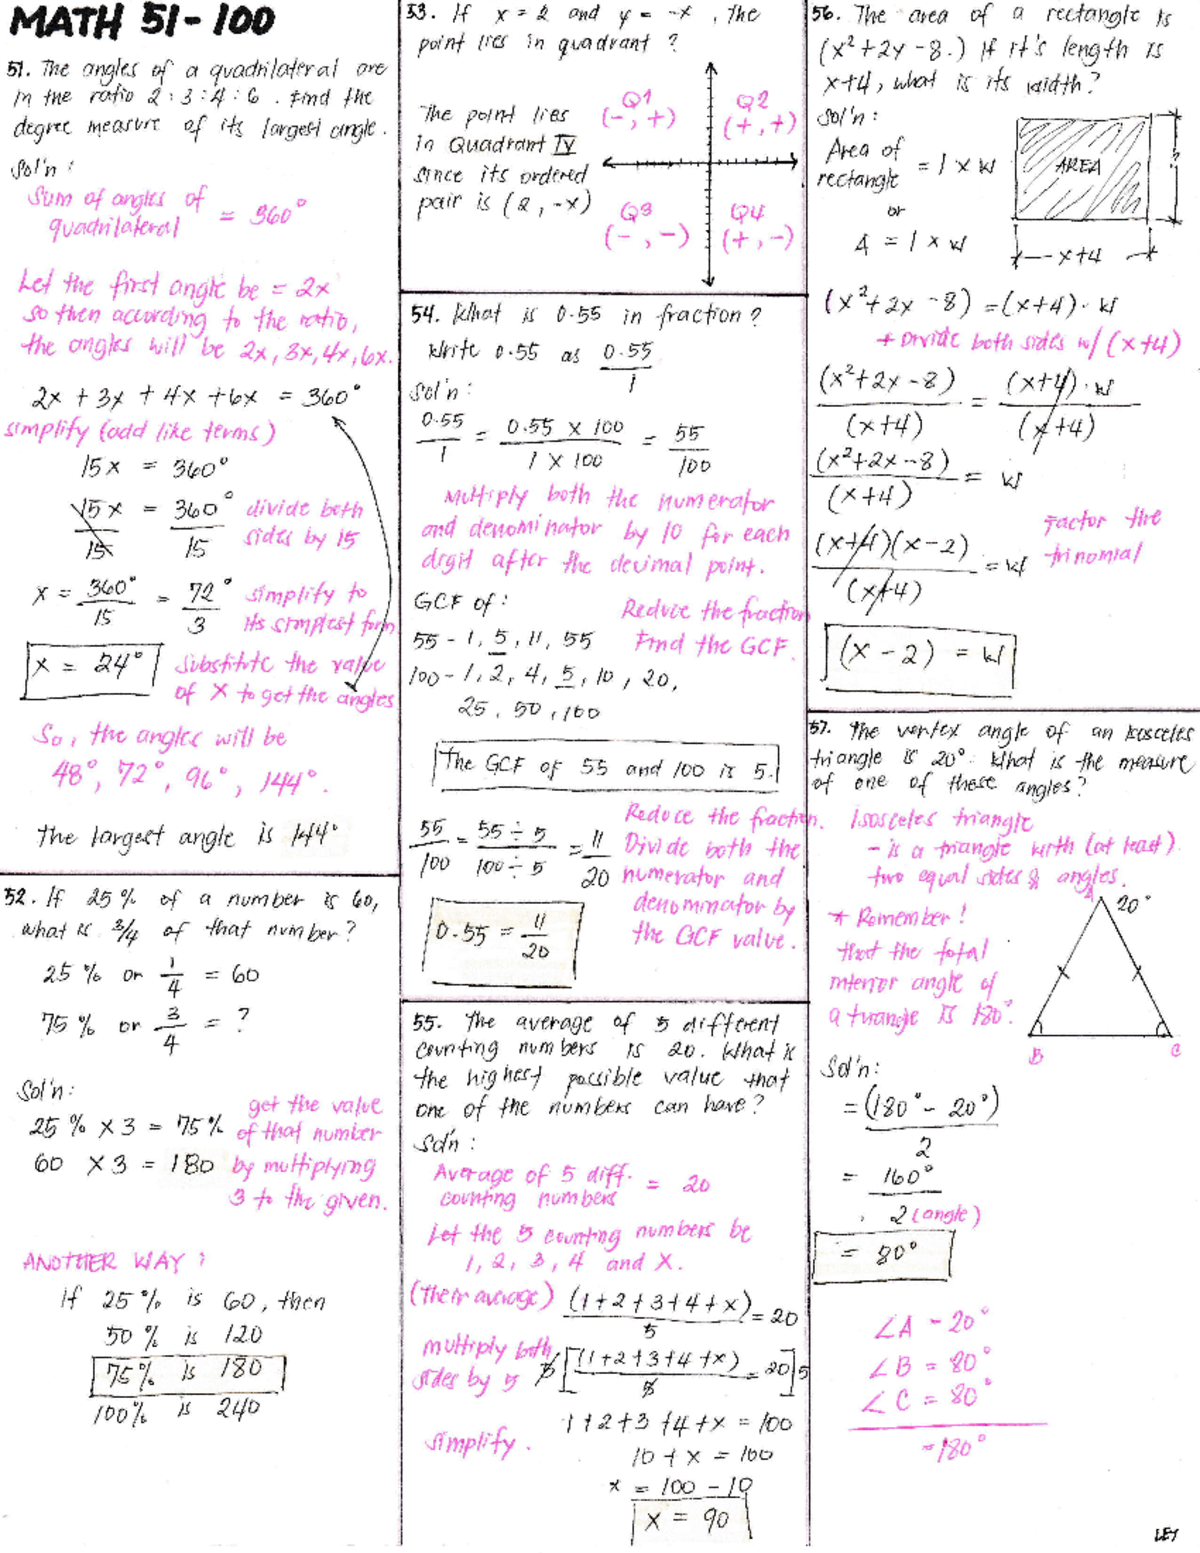 MATH 51-100
51. The angles of a quadrilateral are
in the ratio 2:3:4:6. Find the
degree measure of its largest angle.
Sol'n:
Sum of angles of
quadrilateral = 360°
Let the first angle be = 2x
so then according to the ratio,
the angles will be 2x, 3x, 4x, 6x.
2x + 3x + 4x + 6x = 360°
simplify (add like terms)
15x = 360°
15x/15 = 360°/15 divide both
sides by 15
x = 360°/15 = 72°/3 simplify to
its simplest form
x = 24° substitute the value
of x to get the angles
So, the angles will be
48°, 72°, 96°, 144°.
The largest angle is 144°
52. If 25% of a number is 60,
what is 3/4 of that number?
25% or 1/4 = 60
75% or 3/4 = ?
Sol'n:
25% x 3 = 75%
60 x 3 = 180
get the value
of that number
by multiplying
3 to the given.
ANOTHER WAY:
If 25% is 60, then
50% is 120
75% is 180
100% is 240
53. If x = 2 and y = -x, the
point lies in quadrant?
The point lies
in Quadrant IV
since its ordered
pair is (2, -x)
Q1
(-, +)
Q2
(+, +)
Q3
(-, -)
Q4
(+, -)
54. What is 0.55 in fraction?
Write 0.55 as 0.55/1
Sol'n:
0.55/1 = 0.55 x 100/1 x 100 = 55/100
Multiply both the numerator
and denominator by 10 for each
digit after the decimal point.
GCF of:
55 - 1, 5, 11, 55
100 - 1, 2, 4, 5, 10, 20,
25, 50, 100
Reduce the fraction
Find the GCF.
The GCF of 55 and 100 is 5.
55/100 = 55÷5/100÷5 = 11/20
Reduce the fraction.
Divide both the
numerator and
denominator by
the GCF value.
0.55 = 11/20
55. The average of 5 different
counting numbers is 20. What is
the highest possible value that
one of the numbers can have?
Sol'n:
Average of 5 diff.
counting numbers = 20
Let the 5 counting numbers be
1, 2, 3, 4 and x.
(Their average) (1+2+3+4+x)/5 = 20
multiply both
sides by 5
5[(1+2+3+4+x)/5 = 20]5
1+2+3+4+x = 100
simplify.
10 + x = 100
x = 100 - 10
x = 90
56. The area of a rectangle is
(x²+2y-8.) If it's length is
x+4, what is its width?
Sol'n:
Area of
rectangle = l x w
or
A = l x w
AREA
?
x+4
(x²+2x-8) = (x+4)·w
+ Divide both sides w/ (x+4)
(x²+2x-8)/(x+4) = (x+4)·w/(x+4)
(x²+2x-8)/(x+4) = w
Factor the
trinomial
(x+4)(x-2)/(x+4) = w
(x-2) = w
57. The vertex angle of an isosceles
triangle is 20°. What is the measure
of one of these angles?
Isosceles triangle
- is a triangle with (at least)
two equal sides & angles.
* Remember!
that the total
interior angle of
a triangle is 180°.
A
20°
B
C
Sol'n:
= (180° - 20°)/2
= 160°/2 (angle)
= 80°
∠A - 20°
∠B = 80°
∠C = 80°
=180°
LET